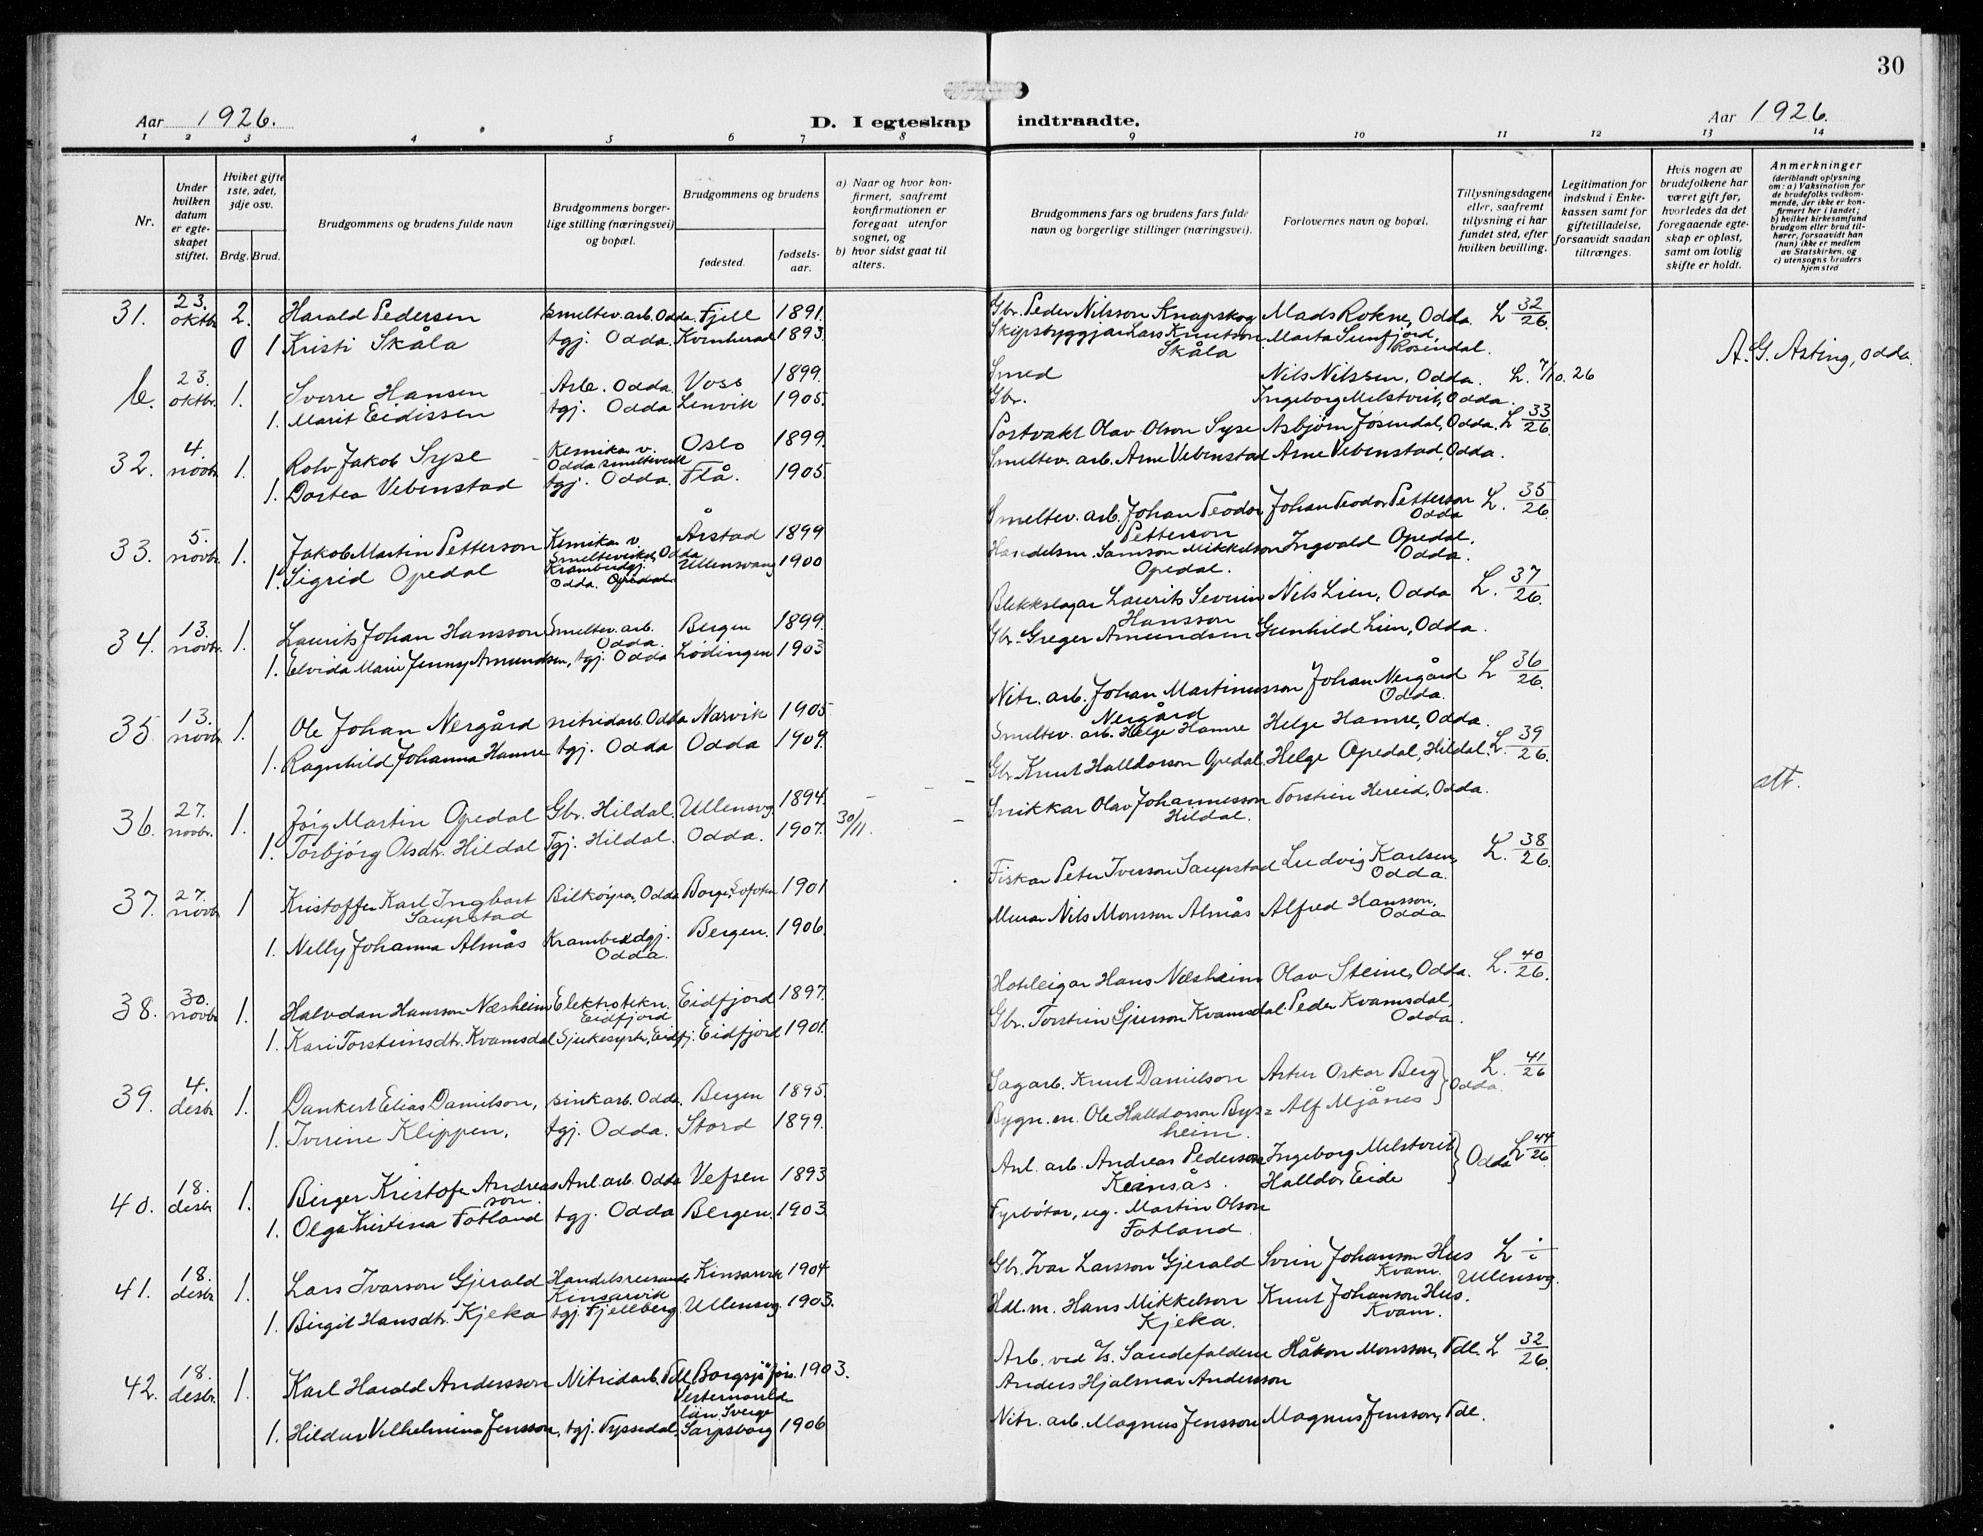 30
Aar 1926.
D. I egteskap indtraadte.
Aar 1926.
1 2 3 4 5 6 7 8 9 10 11 12 13 14
Nr.
Under hvilken datum er egteskapet stiftet.
Hviket gifte 1ste, 2det, 3dje osv.
Brdg. Brud.
Brudgommens og brudens fulde navn
Brudgommens borgerlige stilling (næringsvei) og bopæl.
Brudgommens og brudens
fødested.
fødselsaar.
a) Naar og hvor konfirmert, saafremt konfirmationen er foregaat utenfor sognet, og
b) hvor sidst gaat til alters.
Brudgommens fars og brudens fars fulde navn og borgerlige stillinger (næringsvei).
Forlovernes navn og bopæl.
Tillysningsdagene eller, saafremt tillysning ei har fundet sted, efter hvilken bevilling.
Legitimation for indskud i Enkekassen samt for giftetilladelse, forsaavidt saadan tiltrænges.
Hvis nogen av brudefolkene har været gift før, hvorledes da det foregaaende egteskap er opløst, samt om lovlig skifte er holdt.
Anmerkninger
(deriblandt oplysning om: a) Vaksination for de brudefolks vedkommende, der ikke er konfirmert her i landet; b) hvilket kirkesamfund brudgom eller brud tilhører, forsaavidt han (hun) ikke er medlem av Statskirken, og c) utensogns bruders hjemsted
31. 23. oktbr. 2. Harald Pedersen smeltev. arb. Odda. Fjell 1891. Gbr. Peder Nilsson Knapskog Mads Rokne, Odda. L 32/26.
0 1 Kristi Skåla tgj. Odda. Kvinherad 1893. Skipsbyggjar Lars Knutson Skåla Marta Sunfjord, Rosendal.
A. G. Asting, Odda.
b. 23. oktbr. 1. Sverre Hansen Arb. Odda. Voss 1899. Smed Nils Nilssen, Odda. L. 7/10. 26
1. Marit Eidissen tgj. Odda Lenvik 1905. Gbr. Ingeborg Melstveit, Odda.
32. 4. novbr. 1. Rolv Jakob Syse Kemikar v. Odda smelteverk Oslo 1899. Postvakt Olav Olson Syse Asbjörn Jösendal, Odda. L 33/26.
1. Dortea Vebenstad tgj. Odda. Flå. 1905. Smeltev. arb. Arne Vebenstad Arne Vebenstad, Odda.
33. 5. novbr. 1. Jakob Martin Petterson Kemikar v. Smelteverket, Odda Årstad 1899 Smeltev. arb. Johan Teodor Petterson Johan Teodor Petterson Odda L. 35/26.
1. Sigrid Opedal Krambudgj. Odda. Opedal Ullensvang 1900 Handelsm. Samson Mikkelson Opedal. Ingvald Opedal, Odda.
34. 13. novbr. 1. Laurits Johan Hansson Smeltev. arb. Odda. Bergen 1899. Blikkslagar Laurits Severin Hansson Nils Lien, Odda L. 37/26.
1. Elvida Marie Jenny Amundsen, tgj. Odda Lödingen 1903 Gbr. Greger Amundsen Gunhild Lien, Odda.
35. 13. novbr. 1. Ole Johan Nergård nitridarb. Odda Narvik 1905 Nitr. arb. Johan Martinusson Nergård Johan Nergård Odda. L 36/26.
1. Ragnhild Johanna Hamre tgj. Odda Odda 1904. Smeltev. arb. Helge Hamre Helge Hamre, Odda.
36. 27. novbr. 1. Jörg Martin Opedal Gbr. Hildal. Ullensvg. 1894. Gbr. Knut Halldorson Opedal. Helge Opedal, Hildal. L. 39/26.
1. Torbjörg Olsdtr. Hildal Tgj. Hildal. Odda. 1907. 30/11. Snikkar Olav Johannesson Hildal. Torstein Hereid, Odda.
att.
37. 27. novbr. 1 Kristoffer Karl Ingbart Saupstad Bilköyrar, Odda Borge, Lofoten 1901 Fiskar Peter Iverson Saupstad Ludvig Karlsen, Odda. L. 38/26.
1. Nelly Johanna Almås Krambudgj. Odda. Bergen. 1906. Murar Nils Monsson Almås Alfred Hansson, Odda
38. 30. novbr. 1. Halvdan Hansson Næsheim Elektrotekn. Eidfjord Eidfjord 1897. Hotleigar Hans Næsheim Olav Steine, Odda. L. 40/26.
1. Kari Torsteinsdtr. Kvamsdal Sjukesystr, Eidfj. Eidfjord 1901. Gbr. Torstein Sjurson Kvamsdal. Peder Kvamsdal, Odda.
39. 4. desbr. 1. Dankert Elias Danielson, sinkarb. Odda. Bergen 1895. Sagarb. Knut Danielson Artur Oskar Berg L. 41/26
1. Iverine Klippen, tgj. Odda. Stord 1899. Bygn. m. Ole Halldorson Bysheim. Alf Mjånes } Odda.
40. 18. desbr. 1. Birger Kristofer Andreasson. Anl. arb. Odda Vefsen 1893 Anl. arb. Andreas Pederson Keinsås. Ingeborg Melstveit L 44/26.
1. Olga Kristina Fotland tgj. Odda Bergen. 1903. Fyrbötar, ug. Martin Olson Fotland. Halldor Eide } Odda
41. 18. desbr. 1. Lars Ivarson Gjerald Handelsreisande Kinsarvik Kinsarvik 1904 Gbr. Ivar Larsson Gjerald Svein Johanson Hus Kvam. L i Ullensvg.
1. Birgit Hansdtr. Kjeka tgj. Fjelberg. Ullensvg. 1903. Hdl. m. Hans Mikkelson Kjeka. Knut Johanson Hus. Kvam.
42. 18. desbr. 1. Karl Harald Andersson Nitridarb. Tdl. Borgsjö förs. Vesternorrld län Sverge 1903. Arb. ved Sandefaldene Anders Hjalmar Andersson Håkon Monsson, Tdl. L 32/26.
1. Hildur Vilhelmina Jensson, tgj. Tyssedal. Sarpsborg 1906 Nitr. arb. Magnus Jensson Magnus Jensson, Tdl.